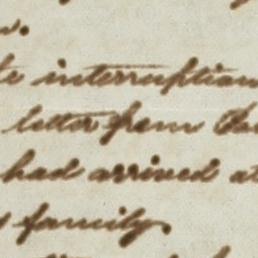 interruption
letter from
had arrived at
family.